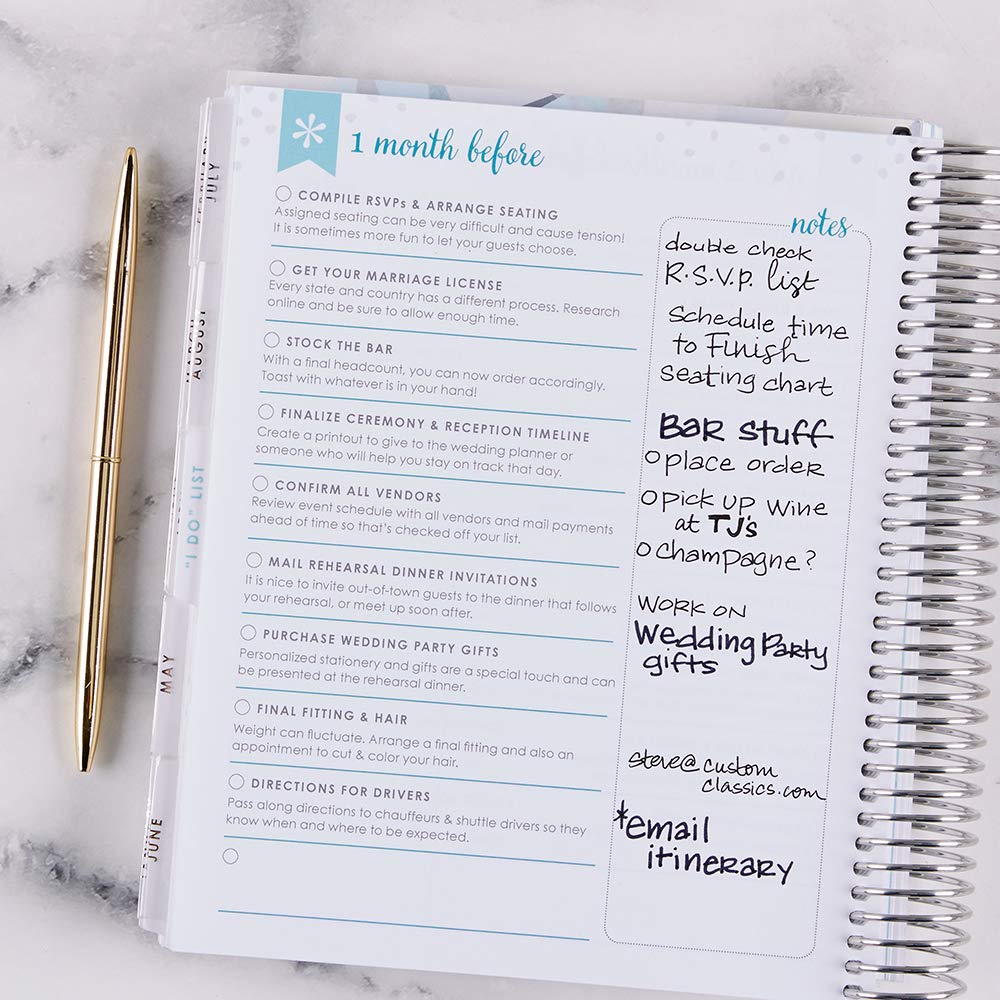 1 month before
COMPILE RSVPs & ARRANGE SEATING
Assigned seating can be very difficult and cause tension!
It is sometimes more fun to let your guests choose.
GET YOUR MARRIAGE LICENSE
Every state and country has a different process. Research
online and be sure to allow enough time.
STOCK THE BAR
With a final headcount, you can now order accordingly.
Toast with whatever is in your hand!
FINALIZE CEREMONY & RECEPTION TIMELINE
Create a printout to give to the wedding planner or
someone who will help you stay on track that day.
CONFIRM ALL VENDORS
Review event schedule with all vendors and mail payments
ahead of time so that's checked off your list.
MAIL REHEARSAL DINNER INVITATIONS
It is nice to invite out-of-town guests to the dinner that follows
your rehearsal, or meet up soon after.
PURCHASE WEDDING PARTY GIFTS
Personalized stationery and gifts are a special touch and can
be presented at the rehearsal dinner.
FINAL FITTING & HAIR
Weight can fluctuate. Arrange a final fitting and also an
appointment to cut & color your hair.
DIRECTIONS FOR DRIVERS
Pass along directions to chauffeurs & shuttle drivers so they
know when and where to be expected.
notes
double check
R.S.V.P. list
Schedule time
to Finish
seating chart
Bar stuff
place order
pick up wine
at TJ's
champagne?
WORK ON
Wedding Party
gifts
steve@custom
classics.com
*email
itinerary
FEBRUARY
JULY
MARCH
AUGUST
"I DO" LIST
MAY
JUNE